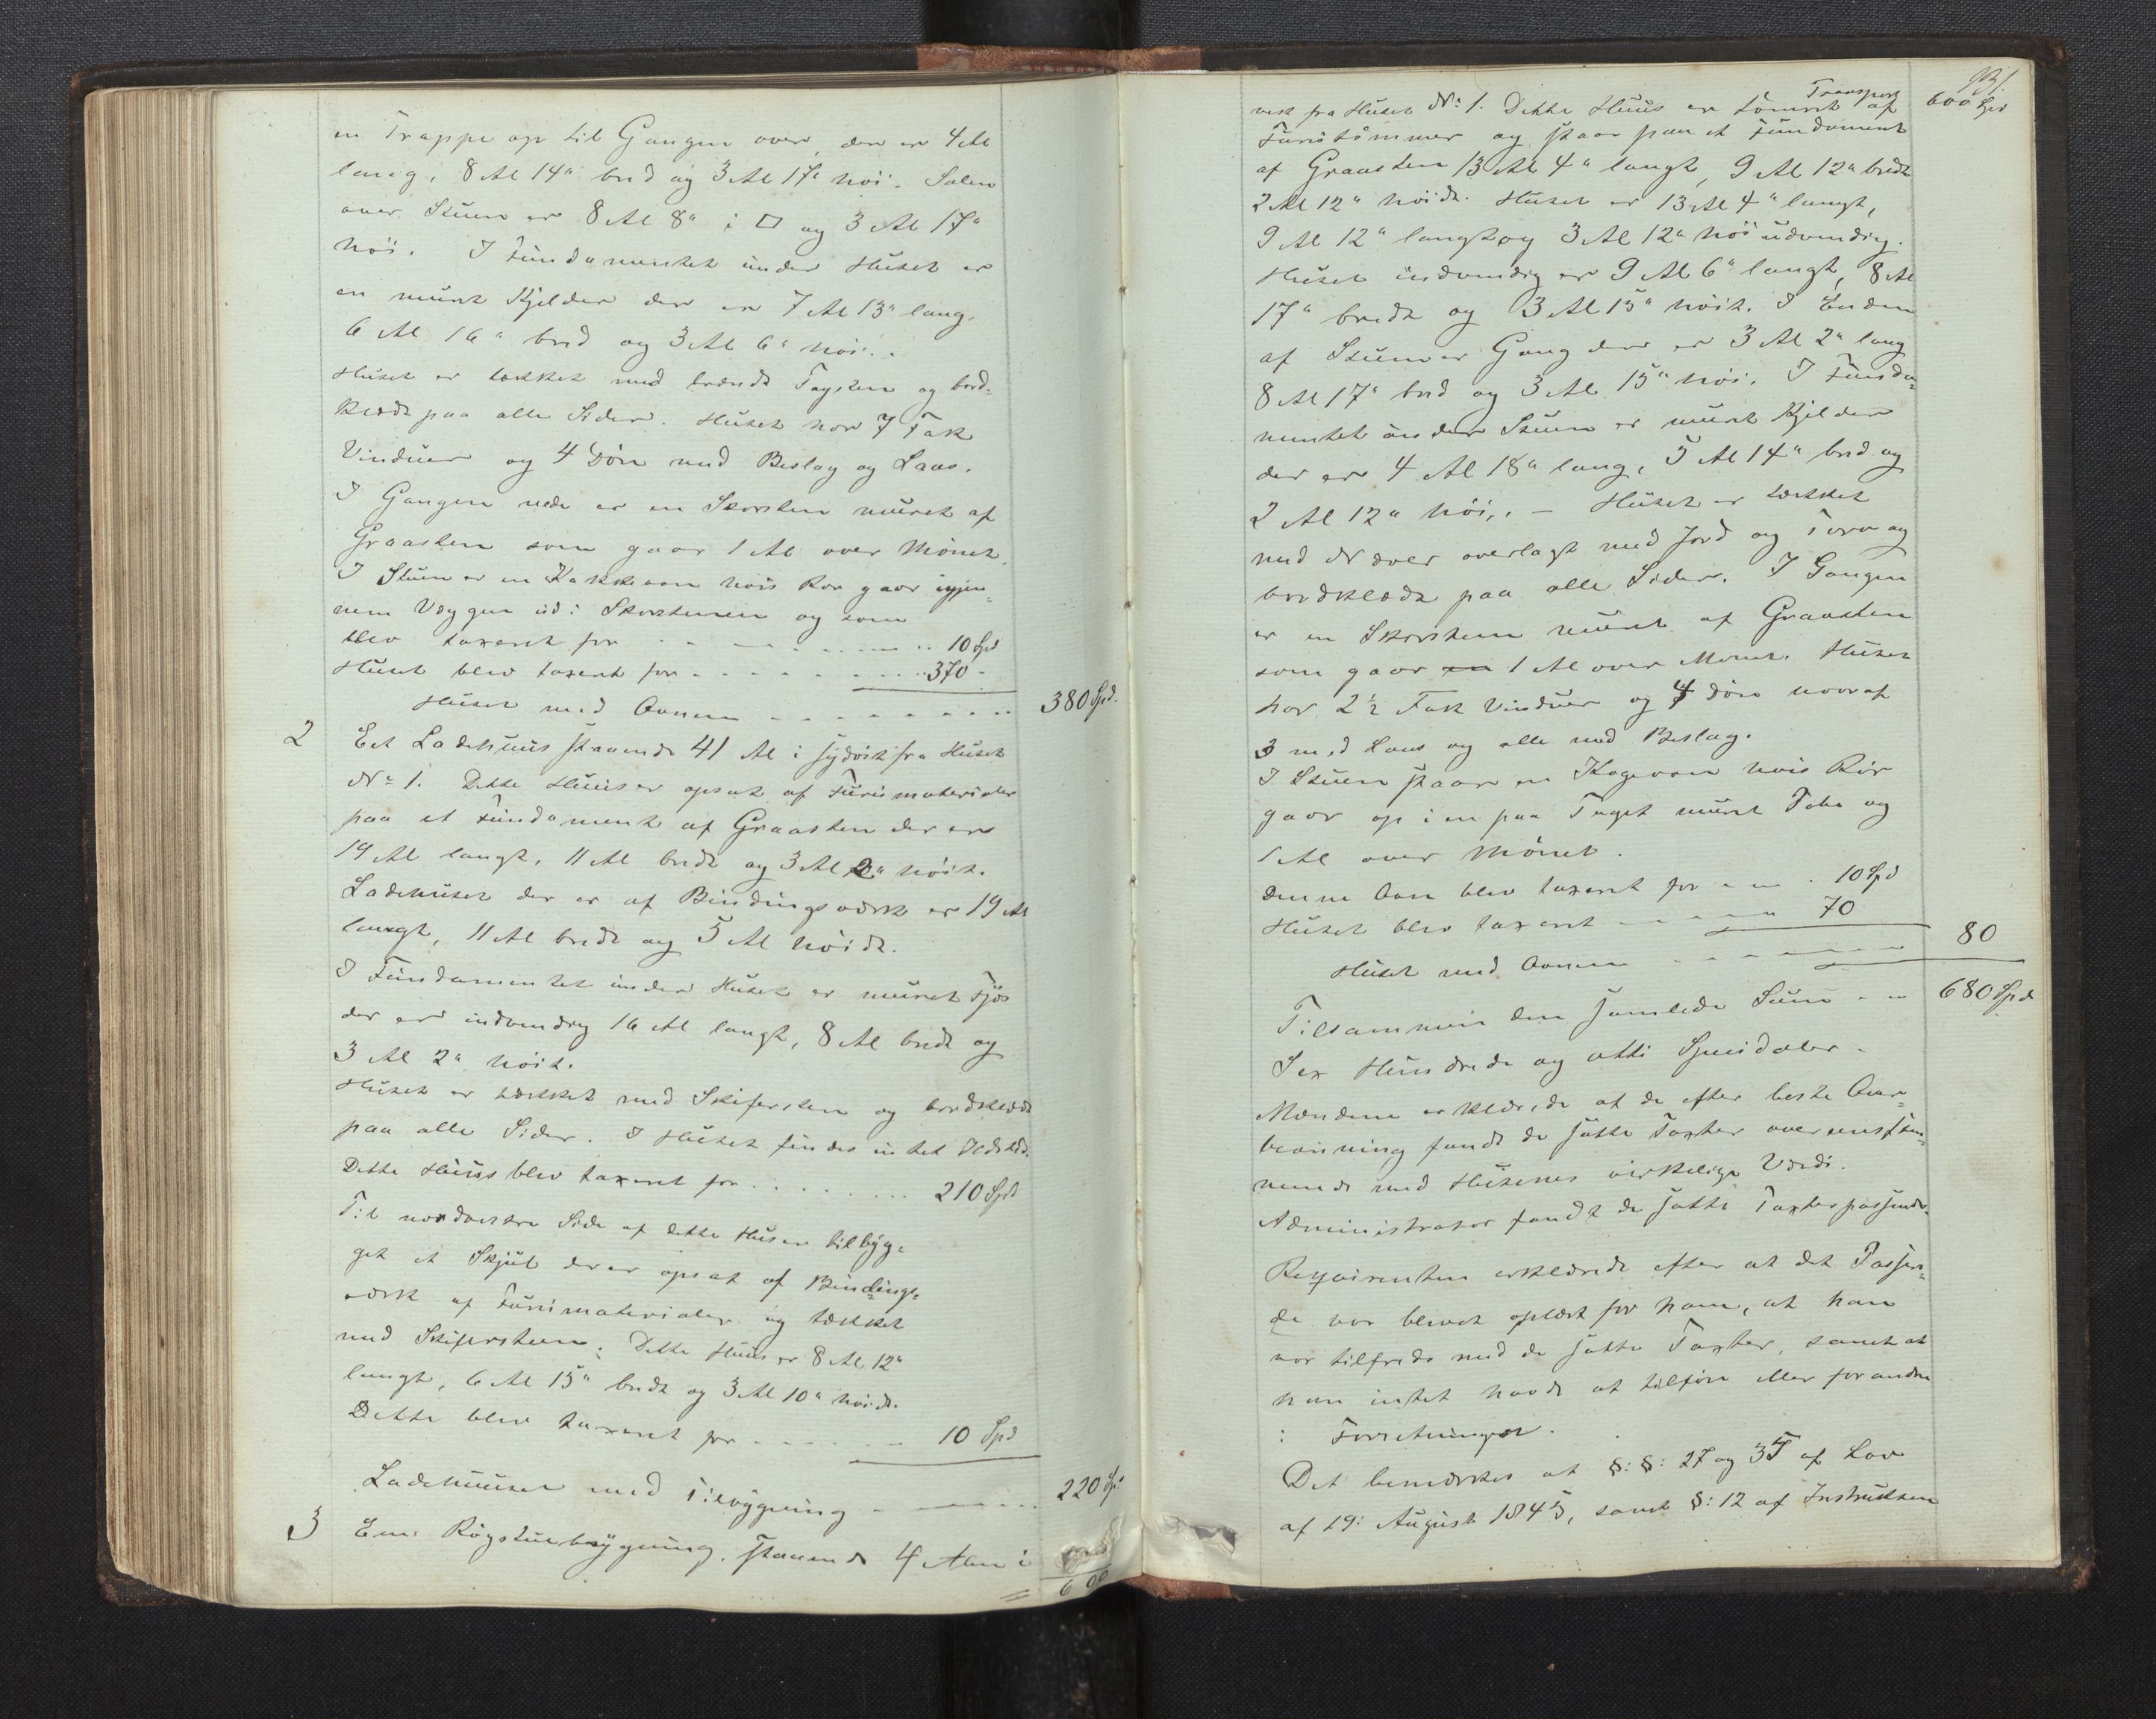 en Trappe op til Gangen over, der er 4 Al
lang, 8 Al 14" bred og 3 Al 17" høi. Salen
over Stuen er 8 Al 8" i □ og 3 Al 17"
høi. I Fundamentet under Huset er
en muret Kjelder der er 7 Al 13" lang,
6 Al 16" bred og 3 Al 6" høi.
Huset er tækket med brændt Tagsten og bord=
klædt paa alle Sider. Huset har 7 Fak
Vinduer og 4 Døre med Beslag og Laas.
I Gangen nede er en Skorsten muret af
Graasten som gaar 1 Al over Mønet.
I Stuen er en Kakkelovn hvis Rør gaar igjen=
nem Væggen ud i Skorstenen og som
blev taxeret for 10 Spd
Huset blev taxeret for 370 -
Huset med Ovnen 380 Spd.
2 Et Ladehuus staaende 41 Al i sydøst fra Huset
No 1. Dette Huus er opsat af Furumaterialer
paa et Fundament af Graasten der er
19 Al langt, 11 Al bredt og 3 Al 2" høit.
Ladehuset der er af Bindingsværk er 19 Al
langt, 11 Al bredt og 5 Al høidt.
I Fundamentet under Huset er muret Fjøs
der er indvendig 16 Al langt, 8 Al bredt og
3 Al 2" høit.
Huset er tækket med Skifersten og bordklædt
paa alle Sider. I Huset findes intet Ildsted.
Dette Huus blev taxeret for 210 Spd
Til nordvestre Side af dette Huus er tilbyg=
get et Skjul der er opsat af Bindings=
værk af Furumaterialer og tækket
med Skifersteen. Dette Huus er 8 Al 12"
langt, 6 Al 15" bredt og 3 Al 10" høidt.
Dette blev taxeret for 10 Spd
Ladehuuset med Tilbygning 220 Sp
3 En Røgstuebygning staaende 4 Alen i
600
Transport 600 Spd
vest fra Huset No 1. Dette Huus er tømret af
Furutømmer og staar paa et Fundament
af Graasten 13 Al 4" langt, 9 Al 12" bredt
2 Al 12" høidt. Huset er 13 Al 4" langt,
9 Al 12" langt og 3 Al 12" høi udvendig.
Huset indvendig er 9 Al 6" langt, 8 Al
17" bredt og 3 Al 15" høit. I Enden
af Stuen er Gang der er 3 Al 2" lang
8 Al 17" bred og 3 Al 15" høi. I Funda=
mentet under Stuen er muret Kjelder
der er 4 Al 18" lang, 5 Al 14" bred og
2 Al 12" høi. — Huset er tækket
med Næver overlagt med Jord og Torv og
bordklædt paa alle Sider. I Gangen
er en Skorsteen muret af Graasten
som gaar en 1 Al over Mønet. Huset
har 2 1/2 Fak Vinduer og 4 Døre hvoraf
3 med Laas og alle med Beslag.
I Stuen staar en Kogeovn hvis Rør
gaar op i en paa Taget muret Pibe og
1 Al over Mønet.
Denne Ovn blev taxeret for 10 Spd
Huset blev taxeret 70
Huset med Ovnen 80
Tilsammen den samlede Sum 680 Spd
Sex Hundrede og otti Speisdaler.
Mændene erklærede at de efter beste Over=
beviisning fandt de satte Taxter overensstem=
mende med Husenes virkelige Værdi.
Administrator fandt de satte Taxter passende.
Reqvirenten erklærede efter at det Passere=
de var blevet oplæst for ham, at han
var tilfreds med de satte Taxter, samt at
han intet havde at tilføie eller forandre
i Forretningen.
Det bemærkes at §: §: 27 og 35 af Lov
af 19: August 1845, samt §: 12 af Instruksen